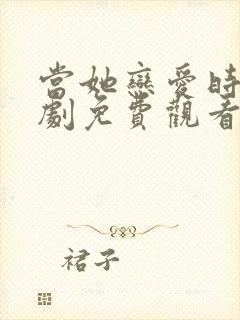 當她戀愛時
劇免費觀看
裙子